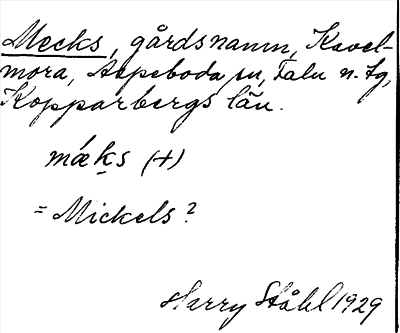 Mecks, gårdsnamn, Kavel-
mora, Aspeboda sn, Falu n. tg,
Kopparbergs län.
mǽks (+)
= Mickels?
Harry Ståhl 1929